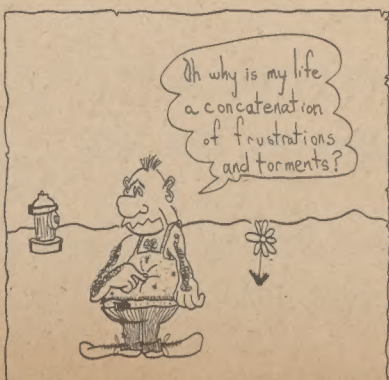 Oh why is my life
a concatenation
of frustrations
and torments?
42